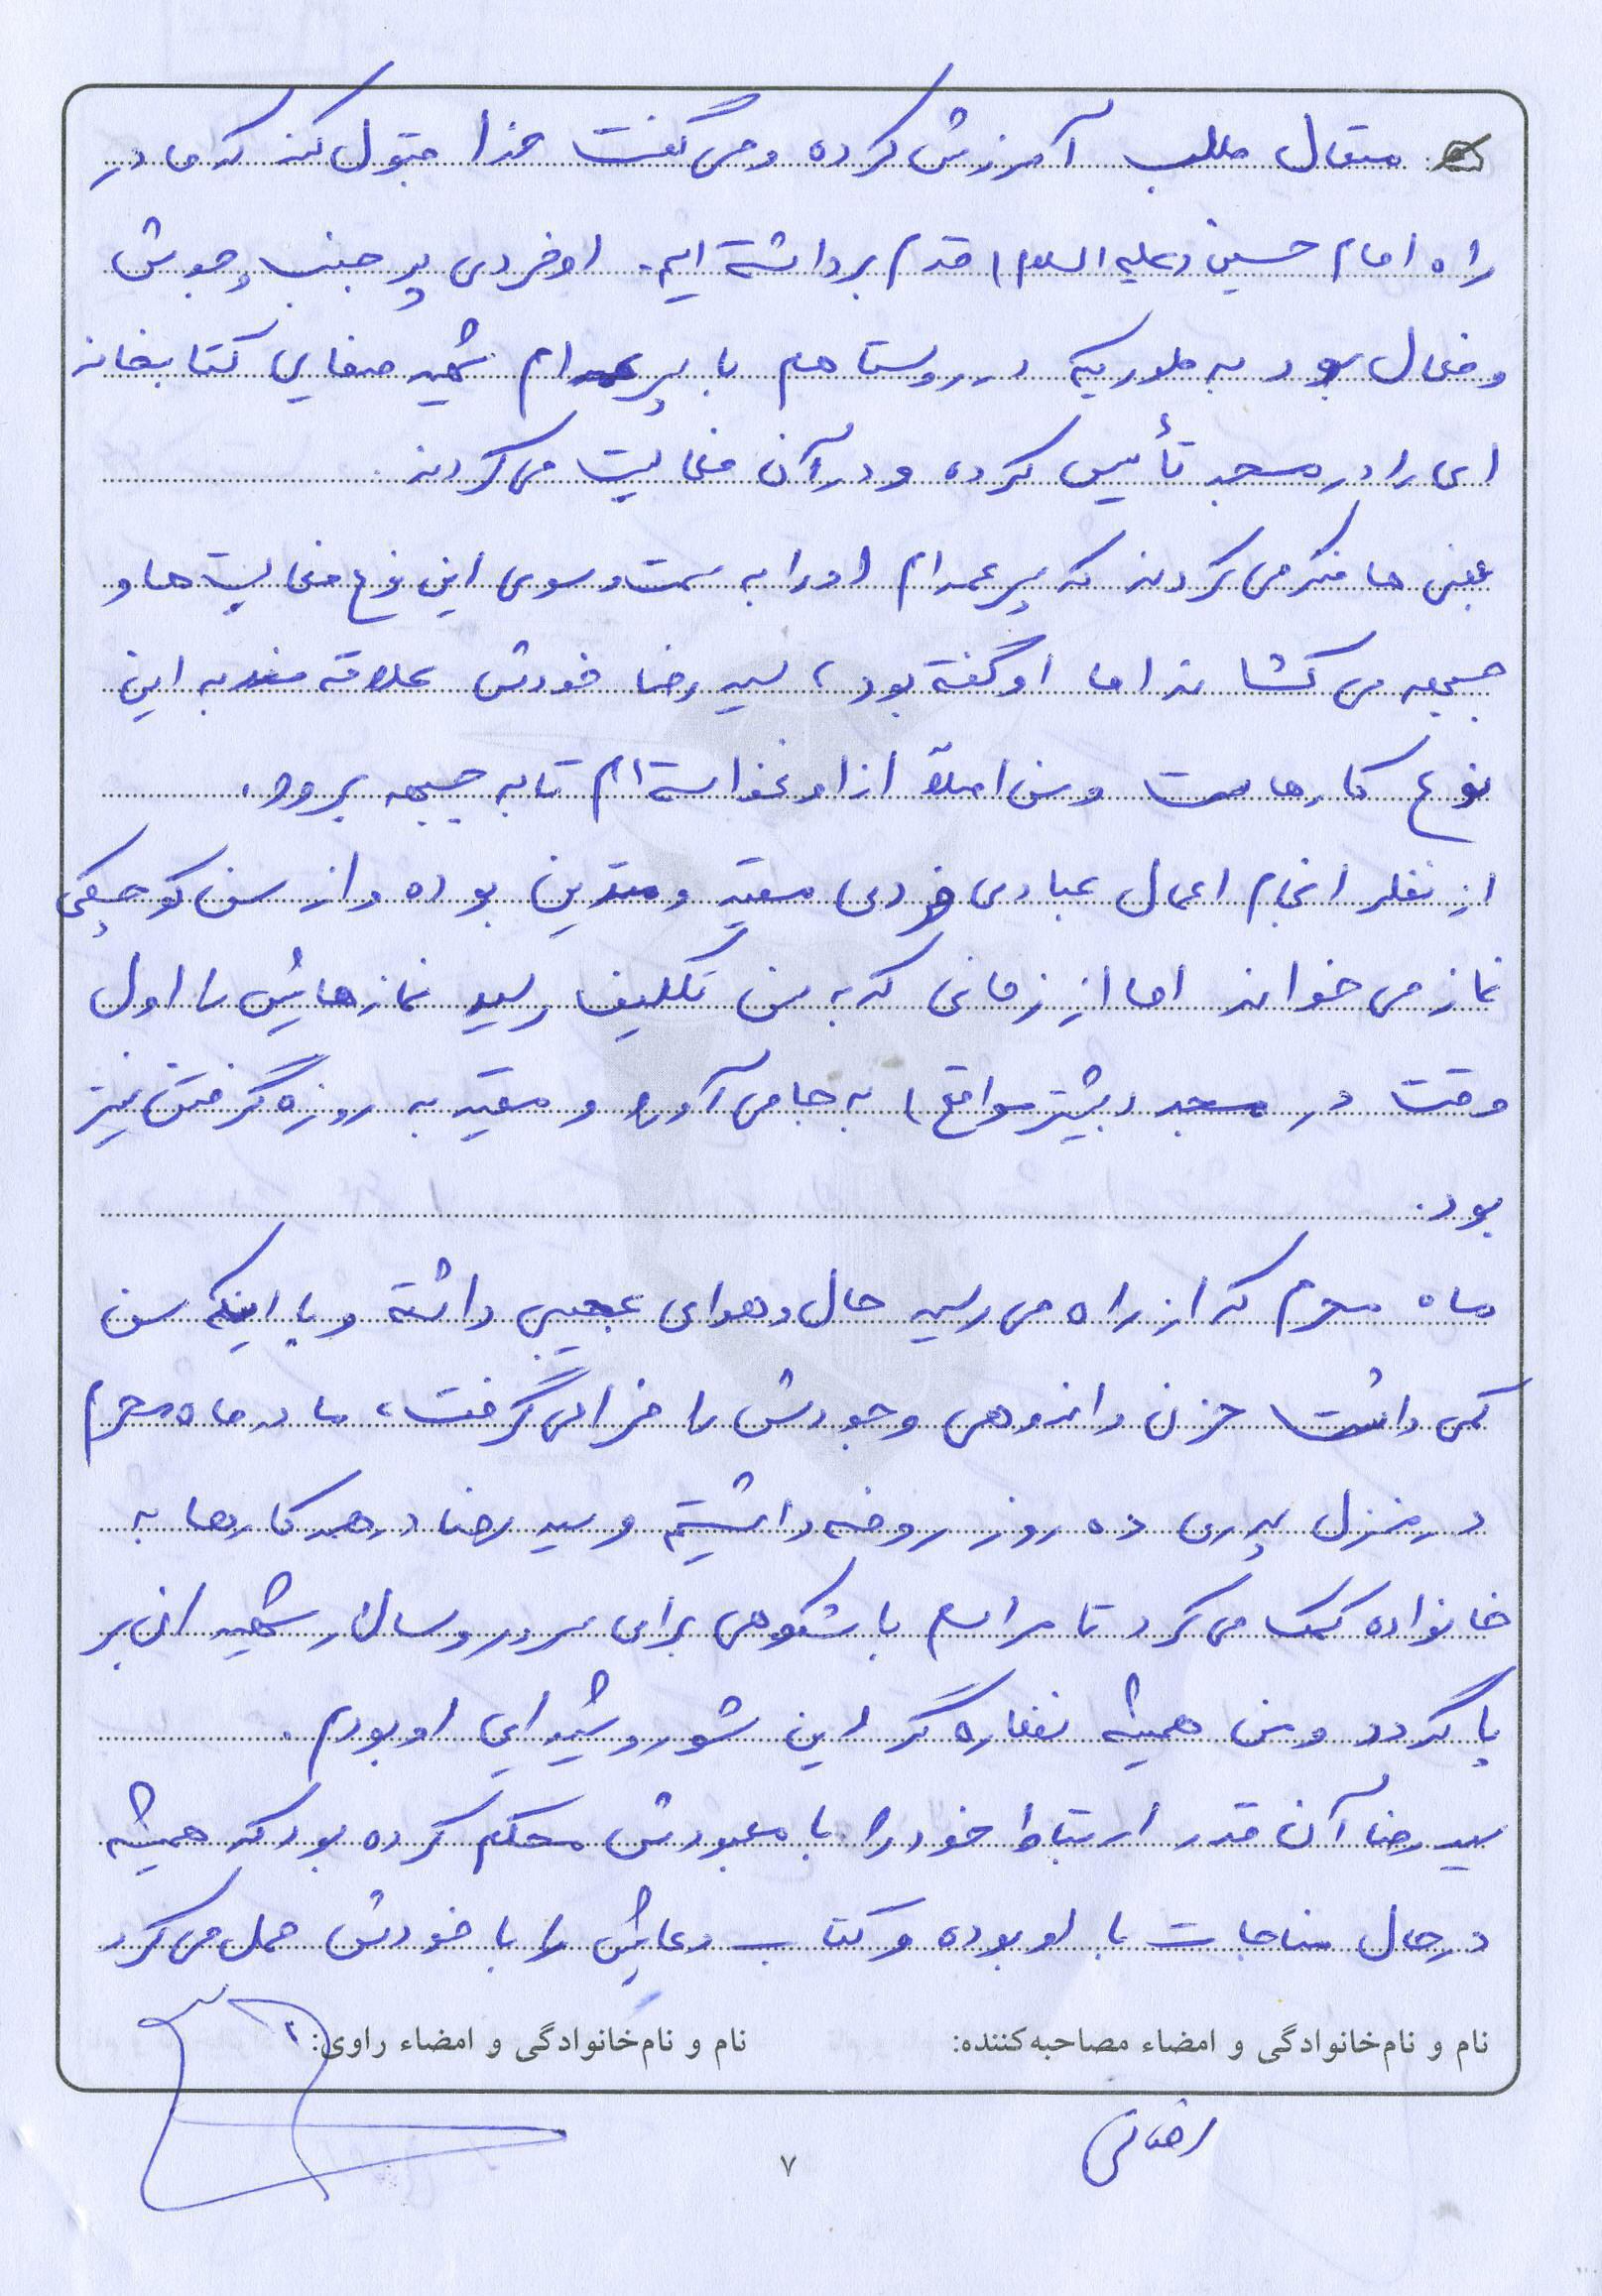 متعال طلب آمرزش کرده و می گفت خدا قبول کند که ما در
راه امام حسین (علیه السلام) قدم برداشته ایم. او فردی پر جنب و جوش
و فعال بود به طوریکه در روستا هم با پسر عمه ام شهید صفایی کتابخانه
ای را در مسجد تأسیس کرده و در آن فعالیت می کردند.
بعضی ها فکر می کردند که پسر عمه ام او را به سمت و سوی این نوع فعالیت ها و
جبهه می کشاند اما او گفته بود، سید رضا خودش علاقه مند به این
نوع کارهاست و من اصلاً از او نخواسته ام تا به جبهه برود.
از نظر انجام اعمال عبادی فردی مقید و متدین بوده و از سن کوچکی
نماز می خواند اما از زمانی که به سن تکلیف رسید نمازهایش را اول
وقت در مسجد (بیشتر مواقع) به جا می آورد و مقید به روزه گرفتن نیز
بود.
ماه محرم که از راه می رسید حال و هوای عجیبی داشته و با اینکه سن
کمی داشت حزن و اندوهی وجودش را فرا می گرفت، ما در ماه محرم
در منزل پدری ده روز روضه داشتیم و سید رضا در همه کارها به
خانواده کمک می کرد تا مراسم باشکوهی برای سرور و سالار شهیدان بر
پا گردد و من همیشه نظاره گر این شور و شیدایی او بودم.
سید رضا آن قدر ارتباط خود را با معبودش محکم کرده بود که همیشه
در حال مناجات با او بوده و کتاب دعایش را با خودش حمل می کرد
نام و نام‌خانوادگی و امضاء مصاحبه‌کننده: نام و نام‌خانوادگی و امضاء راوی:
۷